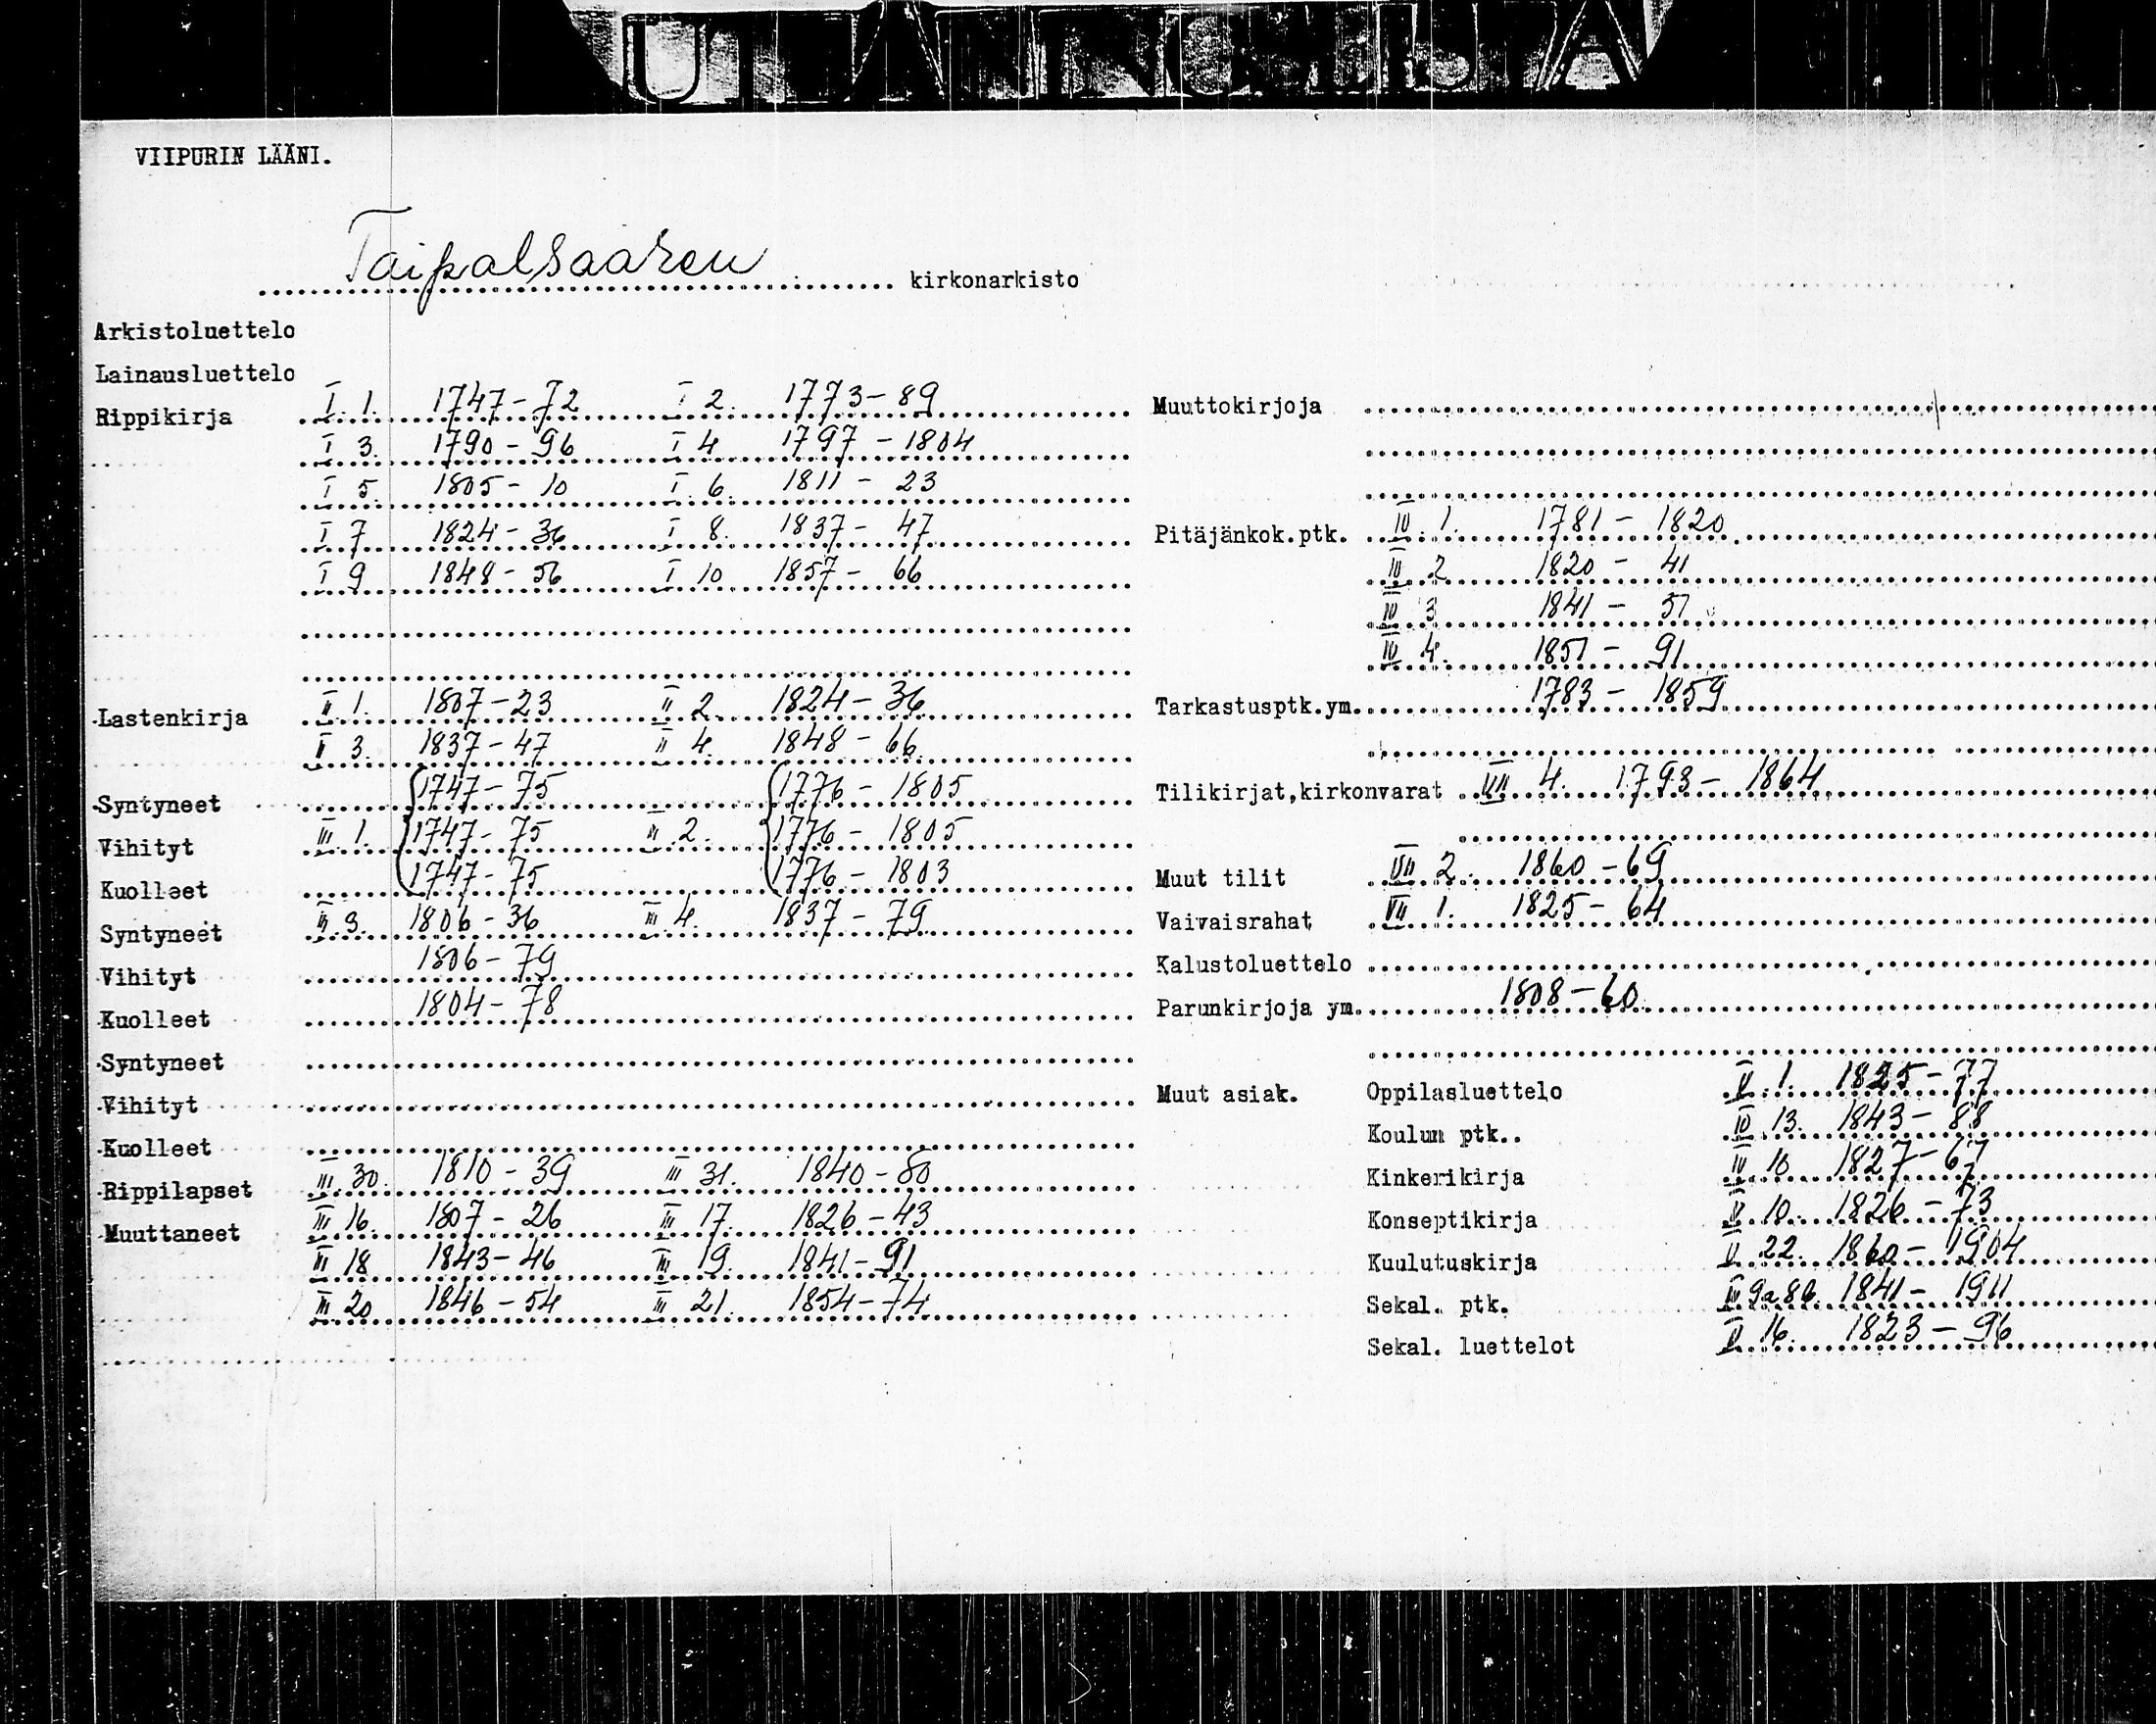 VIIPURIN LÄÄNI.
Taipalsaaren kirkonarkisto
Arkistoluettelo
Lainausluettelo
Rippikirja I. 1. 1747-72 I 2. 1773-89
I 3. 1790-96 I 4 1797-1804
I 5. 1805-10 I. 6. 1811-23
I 7 1824-36 I 8. 1837-47
I 9 1848-56 I 10 1857-66
Lastenkirja II 1. 1807-23 II 2. 1824-36
II 3. 1837-47 II 4. 1848-66
Syntyneet 1747-75 1776-1805
Vihityt III. 1. 1747-75 III 2. 1776-1805
Kuolleet 1747-75 1776-1803
Syntyneet III. 3. 1806-36 III. 4. 1837-79
Vihityt 1806-79
Kuolleet 1804-78
Syntyneet
Vihityt
Kuolleet
Rippilapset III. 30. 1810-39 III 31. 1840-80
Muuttaneet III 16. 1807-26 III 17. 1826-43
III 18 1843-46 III 19. 1841-91
III 20 1846-54 III 21. 1854-74
Muuttokirjoja
Pitäjänkok.ptk. IV. 1. 1781-1820
IV 2 1820-41
IV 3 1841-51
IV 4. 1851-91
Tarkastusptk.ym. 1783-1859
Tilikirjat,kirkonvarat VII 4. 1793-1864
Muut tilit VII 2. 1860-69
Vaivaisrahat VII 1. 1825-64
Kalustoluettelo
Parunkirjoja ym. 1808-60
Muut asiak. Oppilasluettelo V. 1. 1825-77
Koulun ptk.. IV 13. 1843-88
Kinkerikirja IV 10 1827-67
Konseptikirja V 10. 1826-73
Kuulutuskirja V 22. 1860-1904
Sekal. ptk. 1841-1911
Sekal. luettelot V 16. 1823-96